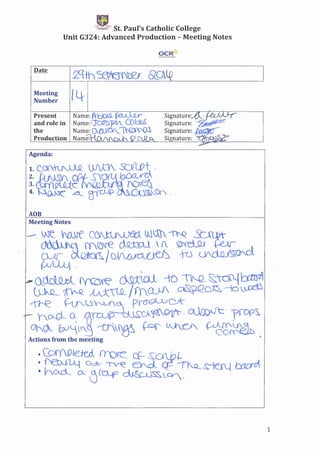 St. Paul's Catholic College
Unit G324: Advanced Production – Meeting Notes
OCR
Date
29th September 2014
Meeting Number
14
Present and role in the Production
Name: Fowler Signature:
Name: Joseph Cobbs Signature:
Name: Thomas Signature:
Name: Hannah Signature:
Agenda:
1. Continue with script.
2. Finish off story board
3. Complete meeting notes
4. Have a group discussion.
AOB
Meeting Notes
- We have continued with the script
adding more detail in in order for
our actors/characters to understand
fully.
- added more detail to the storyboard
like the little/main aspects towards
the finishing product
- had a group discussion about props
and buying things for when filming
comes.
Actions from the meeting
• Completed more of script
• nearly at the end of the story board
• had a group discussion.
1